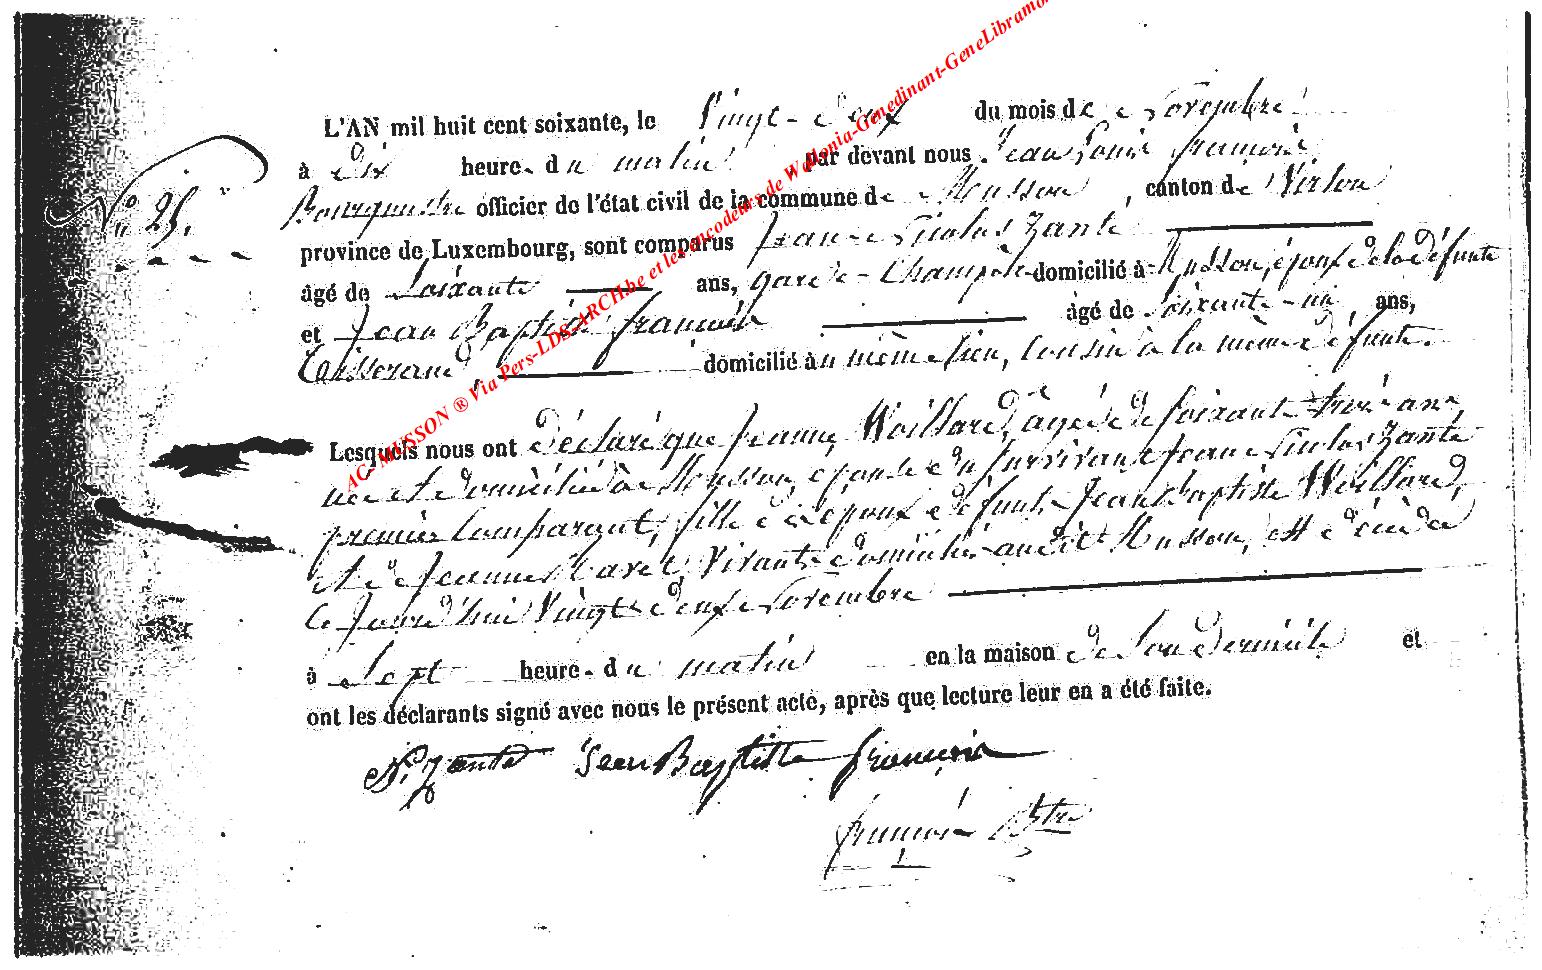 L'AN mil huit cent soixante, le Vingt-deux du mois de Novembre
à Dix heure. du matin par devant nous Jean Louis françois
N° 25. Bourgmestre officier de l'état civil de la commune de Musson, canton de Virton
province de Luxembourg, sont comparus Jean Nicolas Zante
âgé de Soixante ans, garde-Champêtre domicilié à Musson, époux de la défunte
et Jean Baptiste françois âgé de soixante-un, ans,
Tisserand, domicilié au même lieu, Cousin à la même défunte.
Lesquels nous ont déclaré que Jeanne Woillard, âgée de soixante trois ans
née et domiciliée à Musson, épouse du survivant Jean Nicolas Zante
premier Comparant, fille des époux défunts Jean Baptiste Woillard,
et de Jeanne vivants domiciliés audit Musson, est décédée
Ce Jourd'hui Vingt deux Novembre
à Sept heure. du matin en la maison de son domicile et
ont les déclarants signé avec nous le présent acte, après que lecture leur en a été faite.
N. Zante Jean Baptiste françois
françois Bstre
AC. MUSSON ® Via Pers-LDS-ARCH.be et les encodeurs de Wallonia-Genedinant-GeneLibramo